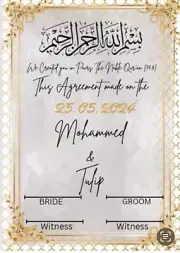 بسم الله الرحمن الرحيم
We Created you in Pairs, The Noble Qur'an [78:8]
This Agreement made on the
25.05.2024
Mohammed
&
Tulip
BRIDE GROOM
Witness Witness